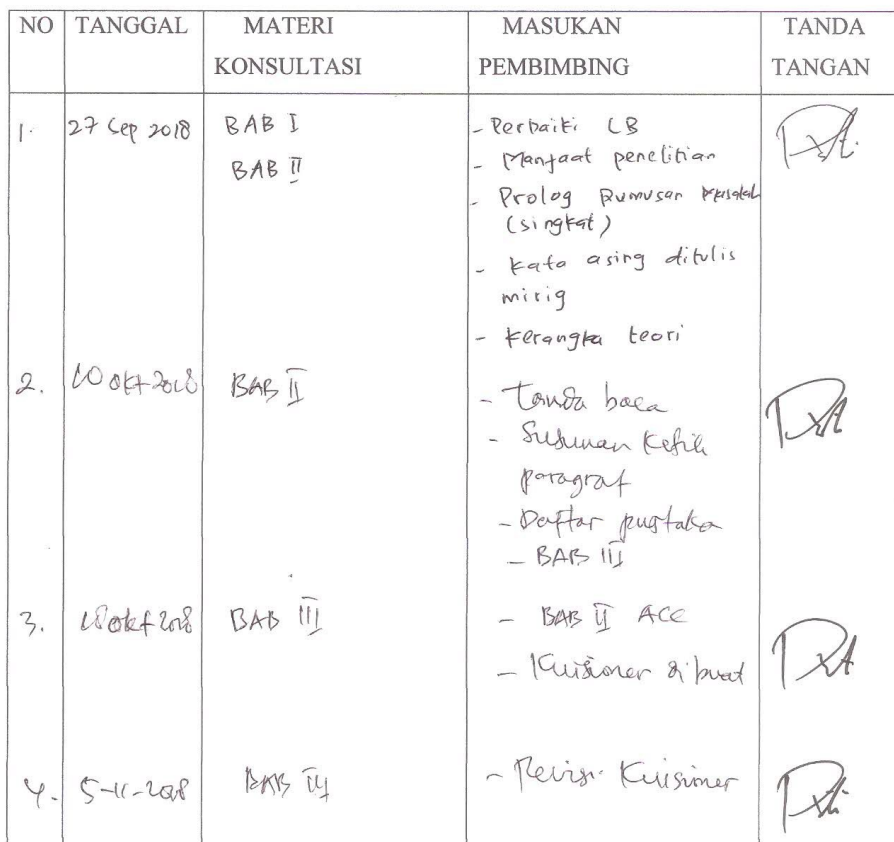 NO TANGGAL MATERI KONSULTASI MASUKAN PEMBIMBING TANDA TANGAN
1. 27 Sep 2018 BAB I - Perbaiki LB
BAB II - Manfaat penelitian
- Prolog Rumusan
(singkat)
- kata asing ditulis
mirig
- kerangka teori
2. 10 okt 2018 BAB II - Tanda baca
- Susunan
paragraf
- Daftar pustaka
- BAB III
3. 18 okt 2018 BAB III - BAB II ACC
- Kuisioner di buat
4. 5-11-2018 BAB - Revisi Kuisioner